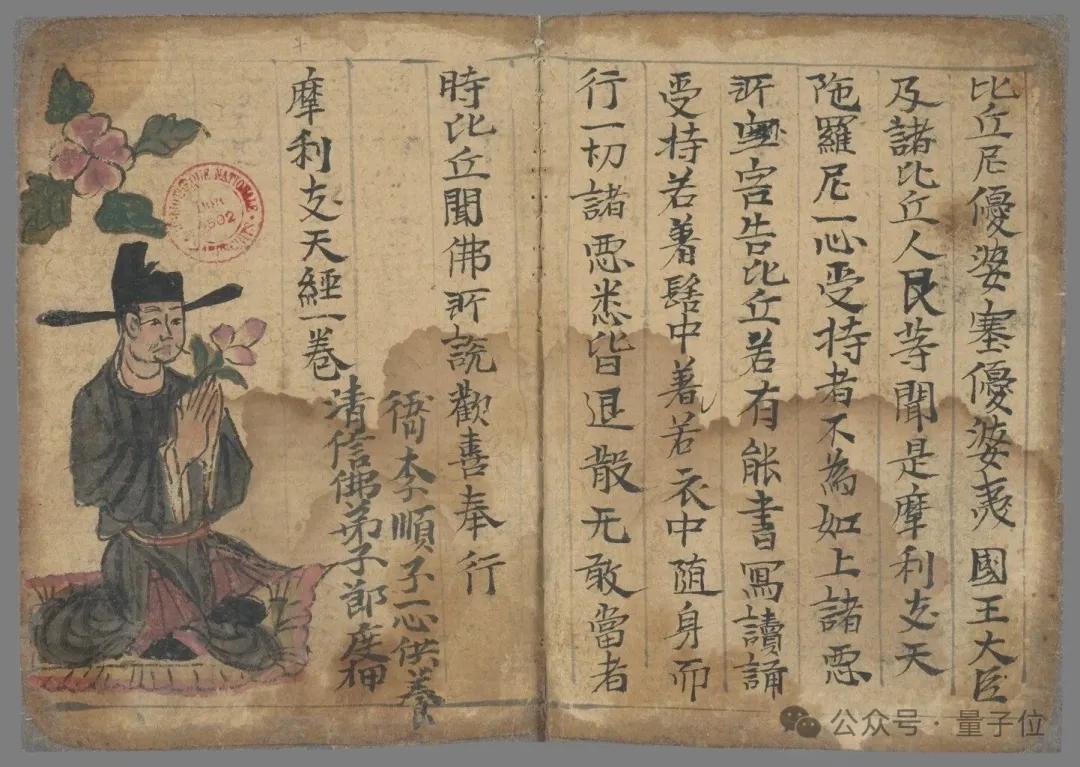 比丘尼優婆塞優婆夷國王大臣
及諸比丘人民等聞是摩利支天
陁羅尼一心受持者不為如上諸惡
所害告比丘若有能書寫讀誦
受持若著髻中著若衣中随身而
行一切諸惡悉皆退散无敢當者
時比丘聞佛所說歡喜奉行
摩利支天經一卷
清信佛弟子節度押
衙李順子一心供養
NATIONALE
公众号 · 量子位